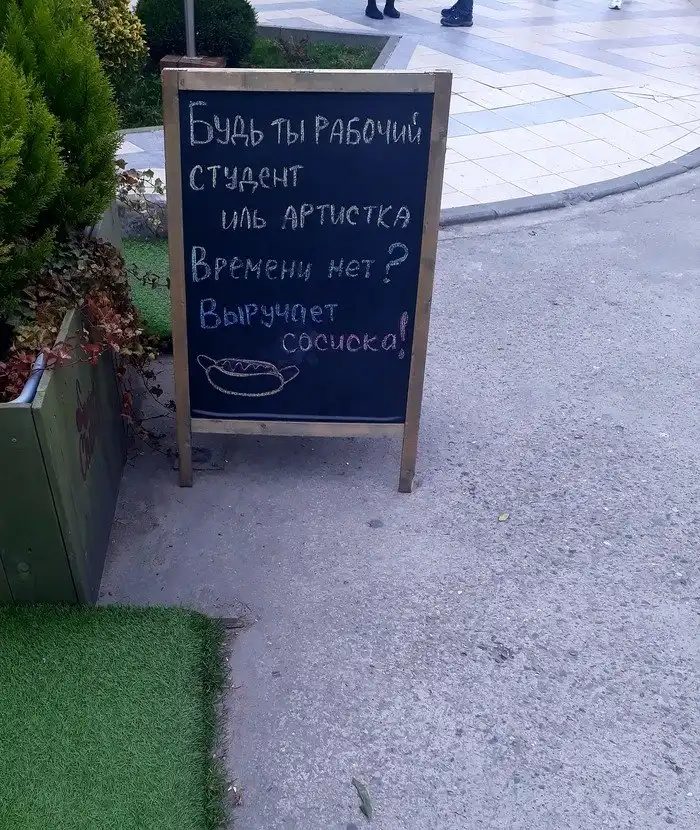 Будь ты рабочий
студент
иль артистка
Времени нет?
Выручает
сосиска!